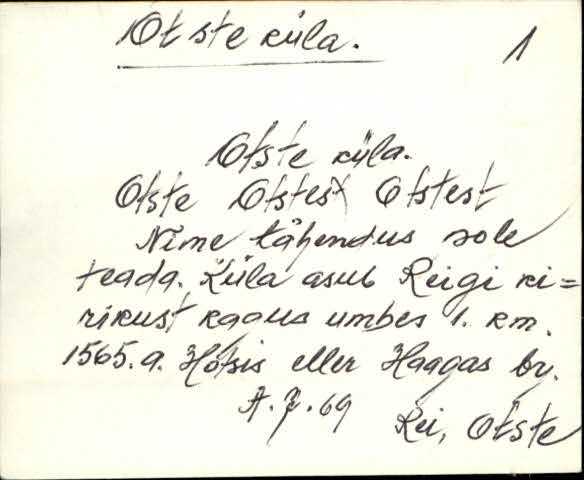 Otste küla.
1
Otste küla.
Otste Otstest Otstest
Nime tähendus pole
teada. Küla asub Reigi ki=
rikust kagus umbes 1. km.
1565.a. Hötsis eller Haagas by.
A. J. 69
Rei, Otste